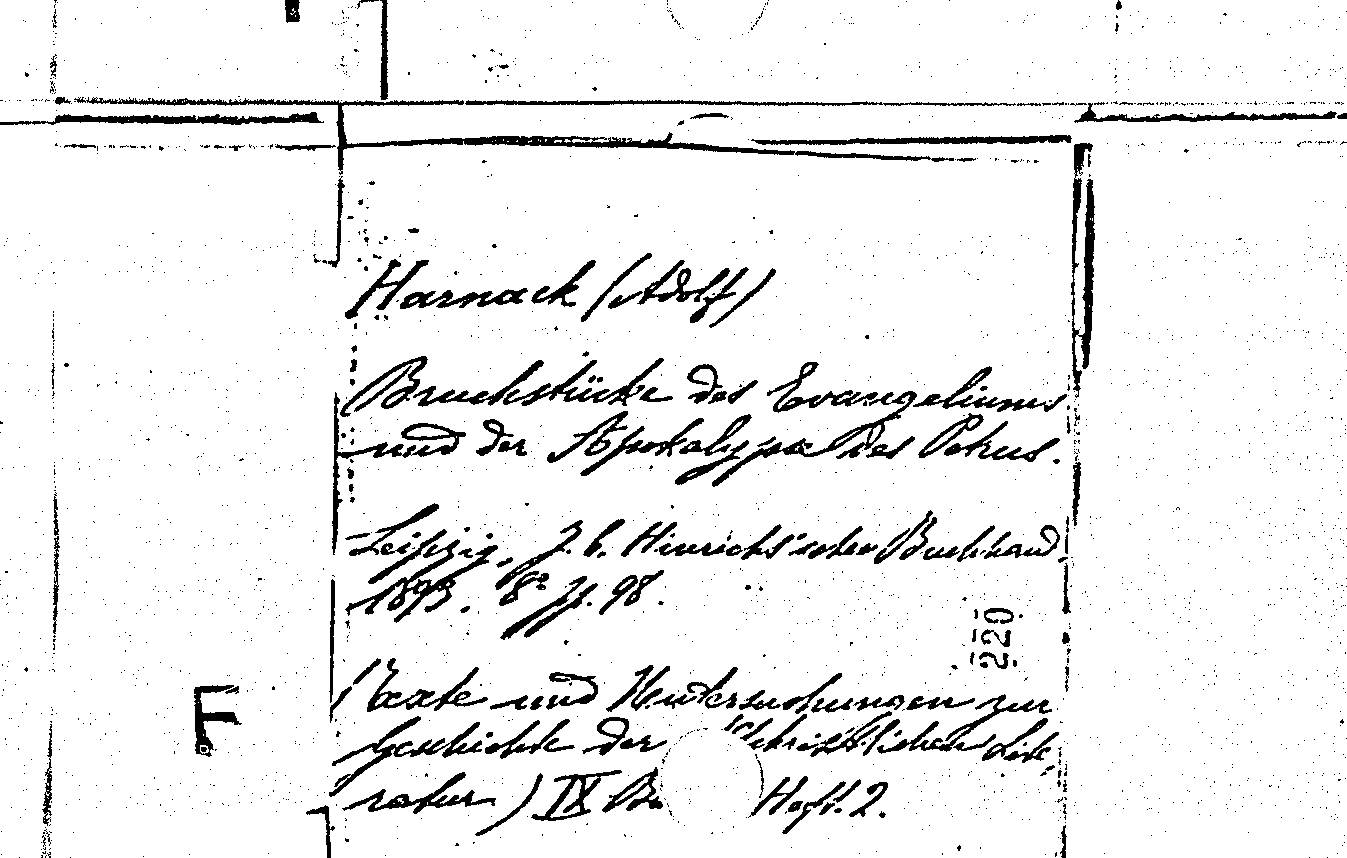 Harnack (Adolf)
Bruchstücke des Evangeliums
und der Apokalypse des Petrus.
Leipzig, J. C. Hinrichs'schen Buchhand.
1893. 8º pp. 98.
220
(Texte und Untersuchungen zur
F
Geschichte der christlichen Lite,
ratur) IX Heft. 2.